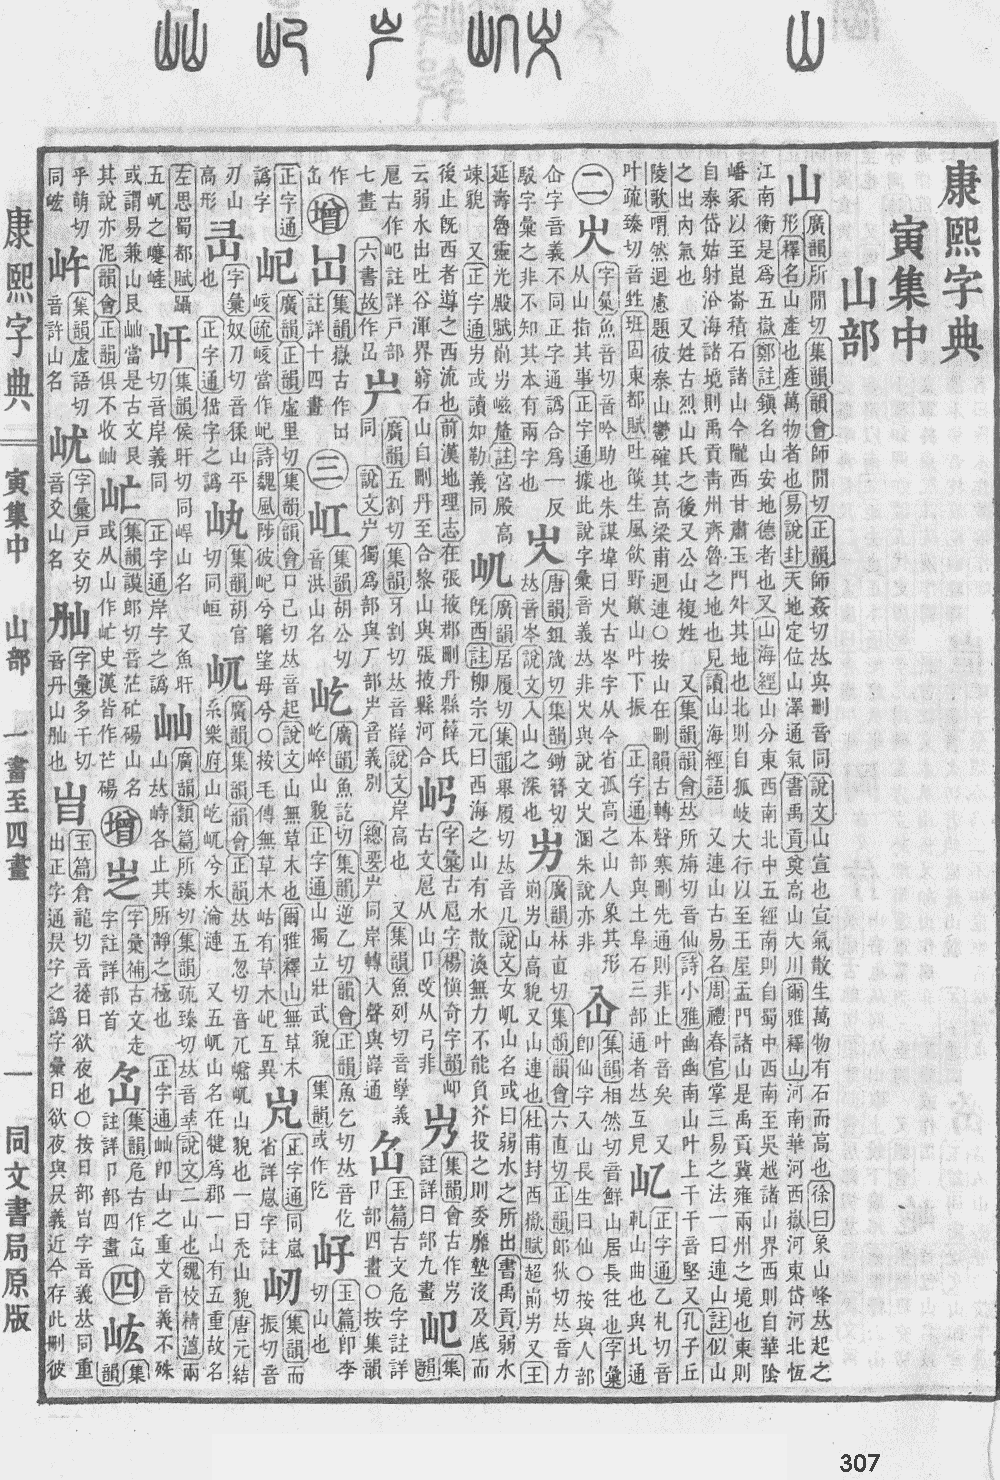 康熙字典
寅集中
山部
山 廣韻所閒切集韻韻會師閒切正韻師姦切𠀤與刪音同說文山宣也宣氣散生萬物有石而高也徐曰象山峰𠀤起之
形釋名山產也產萬物者也易說卦天地定位山澤通氣書禹貢奠高山大川爾雅釋山河南華河西嶽河東岱河北恆
江南衡是爲五嶽鄭註鎭名山安地德者也又山海經山分東西南北中五經南則自蜀中西南至吳越諸山界西則自華陰
嶓冢以至崑崙積石諸山今隴西甘肅玉門外其地也北則自狐岐大行以至王屋孟門諸山是禹貢冀雍兩州之境也東則
自泰岱姑射沿海諸境則禹貢靑州齊魯之地也見讀山海經語 又連山古易名周禮春官掌三易之法一曰連山註似山
之出內氣也 又姓古烈山氏之後又公山複姓 又集韻韻會𠀤所旃切音仙詩小雅幽幽南山叶上干干音堅又孔子丘
陵歌喟然迴慮題彼泰山鬱確其高梁甫迴連○按山在刪韻古轉聲寒刪先通則非止叶音矣 又
叶疏臻切音甡班固東都賦吐燄生風欱野歕山叶下振 正字通本部與土阜石三部通者𠀤互見
正字通乙札切音軋山曲也與圠通
二
字彙魚音切音吟助也朱謀㙔曰火古岑字从今省孤高之山人象其形
从山指其事正字通據此說字彙音義𠀤非
集韻相然切音鮮山居長往也字彙
卽仙字人山長生曰仙○按與人部
仚字音義不同正字通譌合爲一反
駁字彙之非不知其本有兩字也
唐韻鉏箴切集韻鋤簪切
𠀤音岑說文入山之深也
屴 廣韻林直切集韻韻會六直切正韻郞狄切𠀤音力
崱屴山高貌又山連也杜甫封西嶽賦超崱屴又王
延壽魯靈光殿賦崱屴嵫釐註宮殿高
竦貌 又正字通屴或讀如勒義同
屼 廣韻居履切集韻舉履切𠀤音几說文女屼山名或曰弱水之所出書禹貢弱水
旣西註柳宗元曰西海之山有水散渙無力不能負芥投之則委靡墊沒及底而
後止旣西者導之西流也前漢地理志在張掖郡刪丹縣薛氏
云弱水出吐谷渾界窮石山自刪丹至合黎山與張掖縣河合
字彙古㞾字楊愼奇字韻
古文㞾从山卩攺从弓非
集韻會古作
註詳曰部九畫
㞾古作屺註詳戶部
七畫 六書故作嵒
屵 廣韻五割切集韻牙割切𠀤音薛說文岸高也 又集韻魚列切音孽義
同 說文屵獨爲部與厂部屵音義別 總要屵同岸轉入聲與嶭通
玉篇古文危字註詳
卩部四畫○按集韻
作㞾
增 集韻嶽古作
註詳十四畫
三
屸 集韻胡公切
音洪山名
屹 廣韻魚訖切集韻逆乙切韻會正韻魚乞切𠀤音仡
屹崪山貌正字通山獨立壯武貌 集韻或作阣
玉篇卽李
切山也
正字通
譌字
屺 廣韻正韻虛里切集韻韻會口己切𠀤音起說文山無草木也爾雅釋山無草木
峐疏峐當作屺詩魏風陟彼屺兮瞻望母兮○按毛傳無草木岵有草木屺互異
正字通同嵐
省詳嵐字註
屻 集韻而
振切音
刃山
高形
字彙奴刀切音猱山平
也 正字通㺜字之譌
集韻胡官
切同峘
屼 廣韻集韻韻會正韻𠀤五忽切音兀㟮屼山貌也一曰禿山貌唐元結
系樂府山屹屼兮水淪漣 又五屼山名在犍爲郡一山有五重故名
左思蜀都賦躡
五屼之蹇嵼
屽 集韻侯旰切同㟁山名 又魚旰
切音岸義同 正字通岸字之譌
屾 廣韻類篇所臻切集韻疏臻切𠀤音莘說文二山也魏校精薀兩
山𠀤峙各止其所靜之極也 正字通屾卽山之重文音義不殊
或謂易兼山艮屾當是古文艮
其說亦泥韻會正韻俱不收屾
集韻謨郞切音茫𥐞碭山名
或从山作史漢皆作芒碭
增 字彙補古文走
字註詳部首
集韻危古作
註詳卩部四畫
四
峵 集韻
乎萌切
同峵
集韻虛語切
音許山名
字彙戶交切
音爻山名
字彙多干切
音丹山也
玉篇倉龍切音蓯日欲夜也○按日部字音義𠀤同重
出正字通㫐字之譌字彙日欲夜與㫐義近今存此刪彼
康熙字典 寅集中 山部 一畫至四畫 一 同文書局原版
307